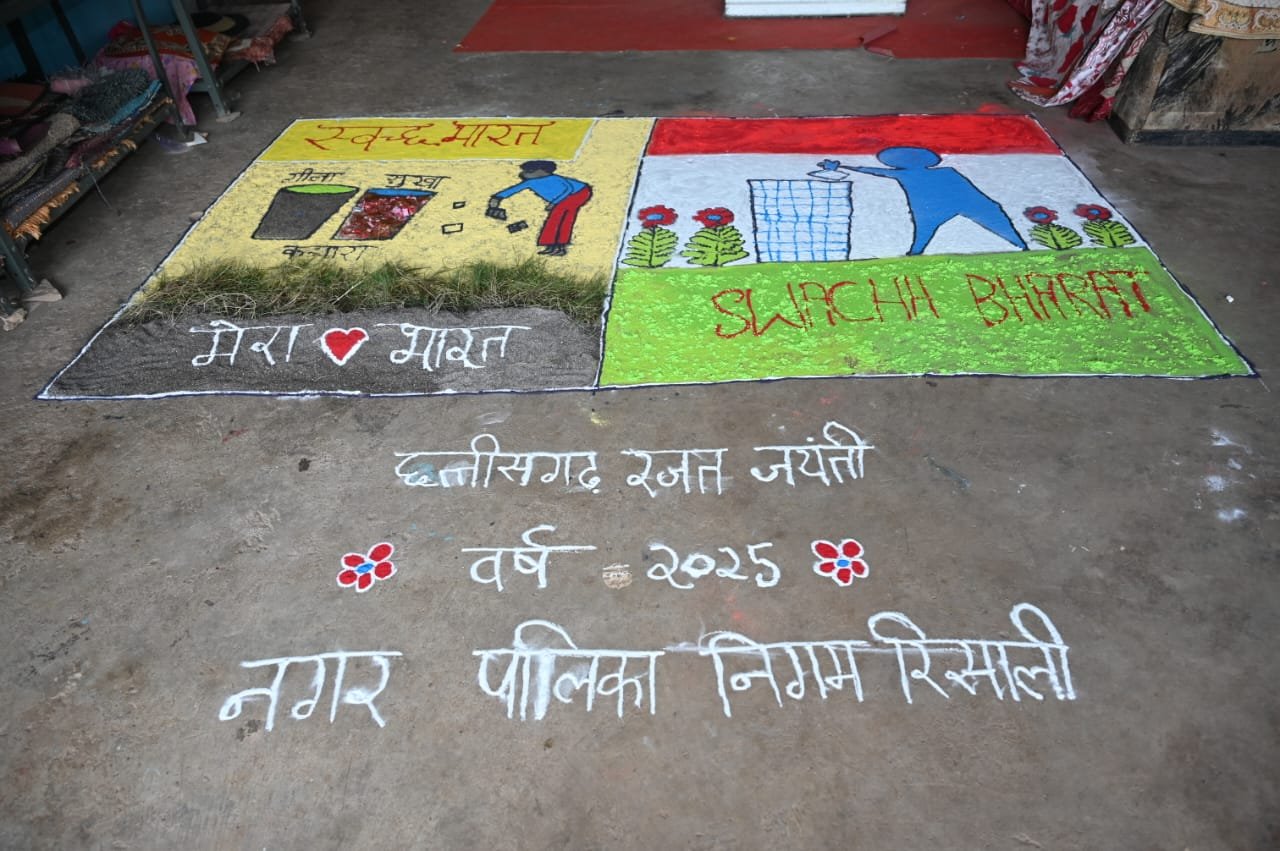 स्वच्छ भारत
गीला सुखा
कचारा
मेरा भारत
SWACHH BHARAT
छत्तीसगढ़ रजत जयंती
वर्ष २०२5
नगर पालिका निगम रिसाली